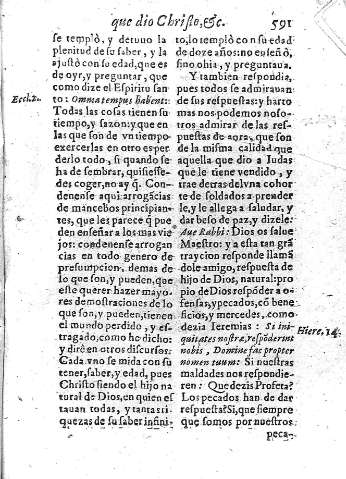 que dio Christo, &c. 591
se templò, y detuuo la
plenitud de su saber, y la
ajustò con su edad, que es
de oyr, y preguntar, que
como dize el Espiritu san
Eccl.2.
to: Omma tempus habent:
Todas las cosas tienen su
tiempo, y sazon: y que en
las que son de vn tiempo
exercerlas en otro es per
derlo todo, si quando se
ha de sembrar, quisiesse-
des coger, no ay q̃. Con-
denense aqui arrogãcias
de mancebos principian-
tes, que les parece q̃ pue
den enseñar a los mas vie
jos: condenense arrogan
cias en todo genero de
presumpcion, demas de
lo que son, y pueden, que
este querer hazer mayo-
res demostraciones de lo
que son, y pueden, tienen
el mundo perdido, y es-
tragado, como he dicho:
y dirè en otros discursos.
Cada vno se mida con su
tener, saber, y edad, pues
Christo siendo el hijo na
tural de Dios, en quien es
tauan todas, y tantas ri-
quezas de su saber infini-
to, lo templò con su edad
de doze años: no enseñò,
sino ohia, y preguntaua.
Y tambien respondia,
pues todos se admirauan
de sus respuestas: y harto
mas nos podemos noso-
tros admirar de las res-
puestas de aora, que son
de la misma calidad que
aquella que dio a Iudas
que le tiene vendido, y
trae detras de l vna cohor
te de soldados a prender
le, y le allega a saludar, y
dar beso de paz, y dizele:
Aue Rabbi: Dios os salue
Maestro: y a esta tan grã
traycion responde llamã
dole amigo, respuesta de
hijo de Dios, natural: pro
pio de Dios respõder a o-
fensas, y pecados, cõ bene
ficios, y mercedes, como
dezia Ieremias: Si ini-
Hiere, 14.
quitates nostræ, respõderint
nobis, Domine fac propter
nomen tuum: Si nuestras
maldades nos respondie-
ren: Que dezis Profeta?
Los pecados han de dar
respuesta? Si, que siempre
que somos por nuestros
peca-